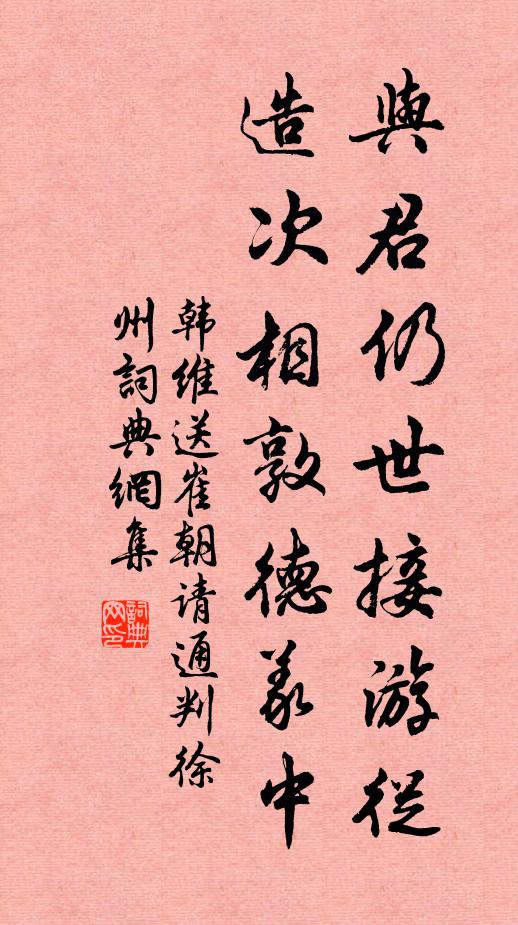 與君仍世接游從
造次相敦德義中
韩維送崔朝请通判徐
州詞典網集
詞典網印